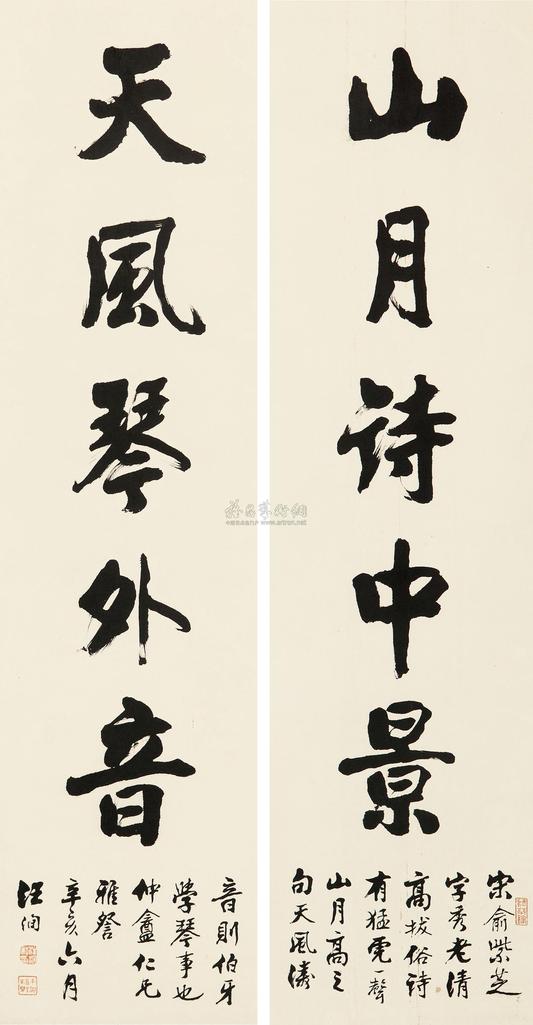 山月詩中景
宋俞紫芝
字秀老清
高拔俗詩
有猛虎一聲
山月高之
句天風濤
天風琴外音
音則伯牙
學琴事也
仲盦仁兄
雅詧
辛亥六月
汪洵
www.artron.net